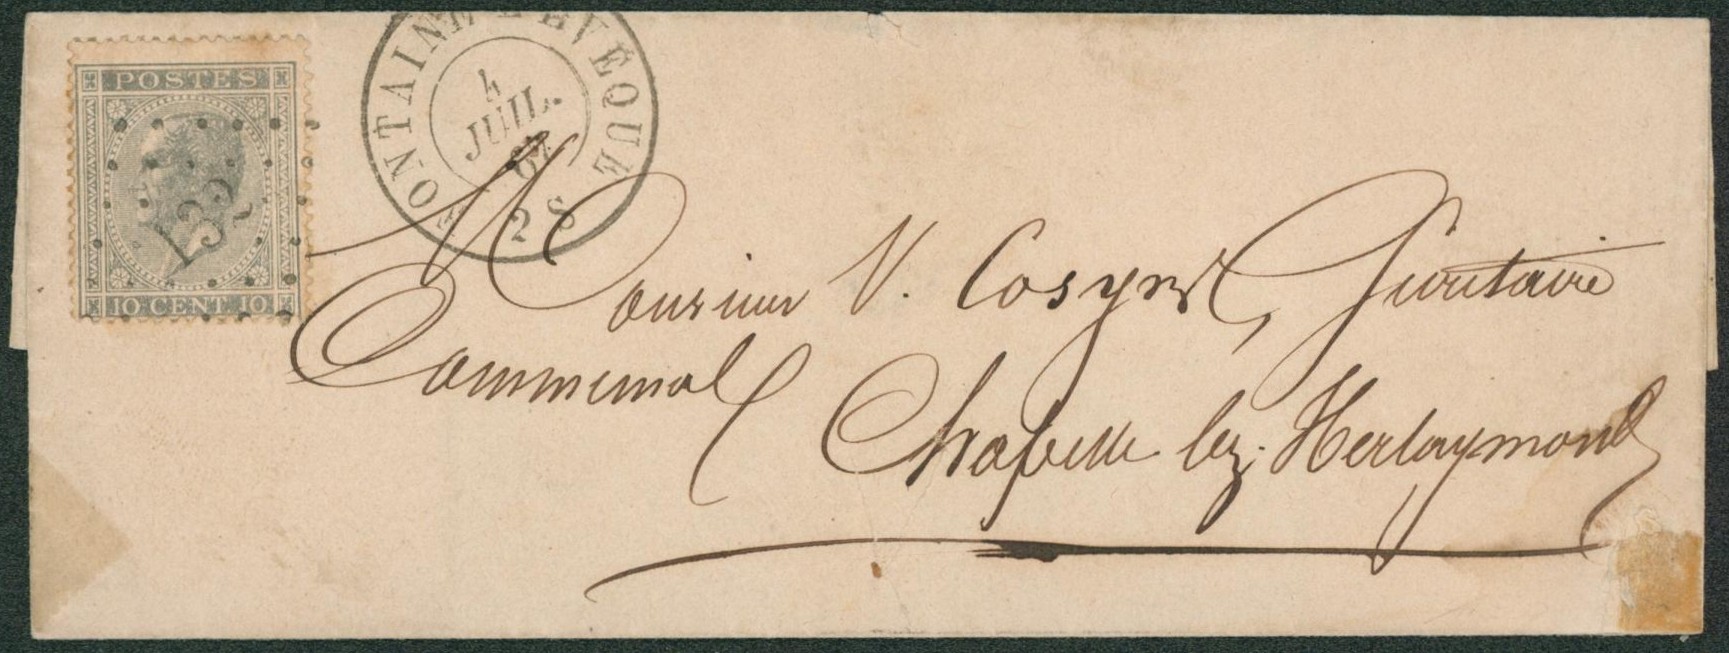 POSTES
10 CENT 10
FONTAINE L'EVÊQUE
4
JUIL.
2 S
Monsieur V. Cosyns, Secrétaire
Communal
Chapelle lez-Herlaymont